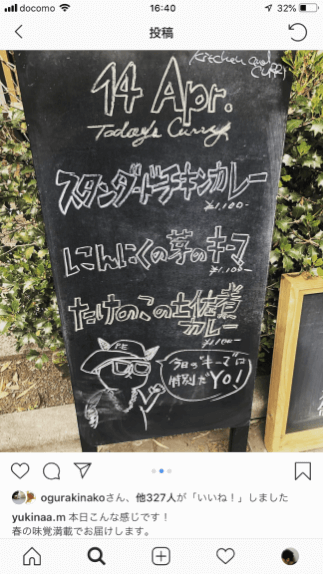 docomo 16:40 32%
投稿
Kitchen and CURRY
14 Apr.
Today's Curry
スタンダードチキンカレー
¥1,100-
にんにくの芽のキーマ
¥1,100-
たけのこの土佐煮
カレー
¥1,100-
PE
今日の"キーマ"は
特別だYO!
ogurakinakoさん、他327人が「いいね!」しました
yukinaa.m 本日こんな感じです！
春の味覚満載でお届けします。